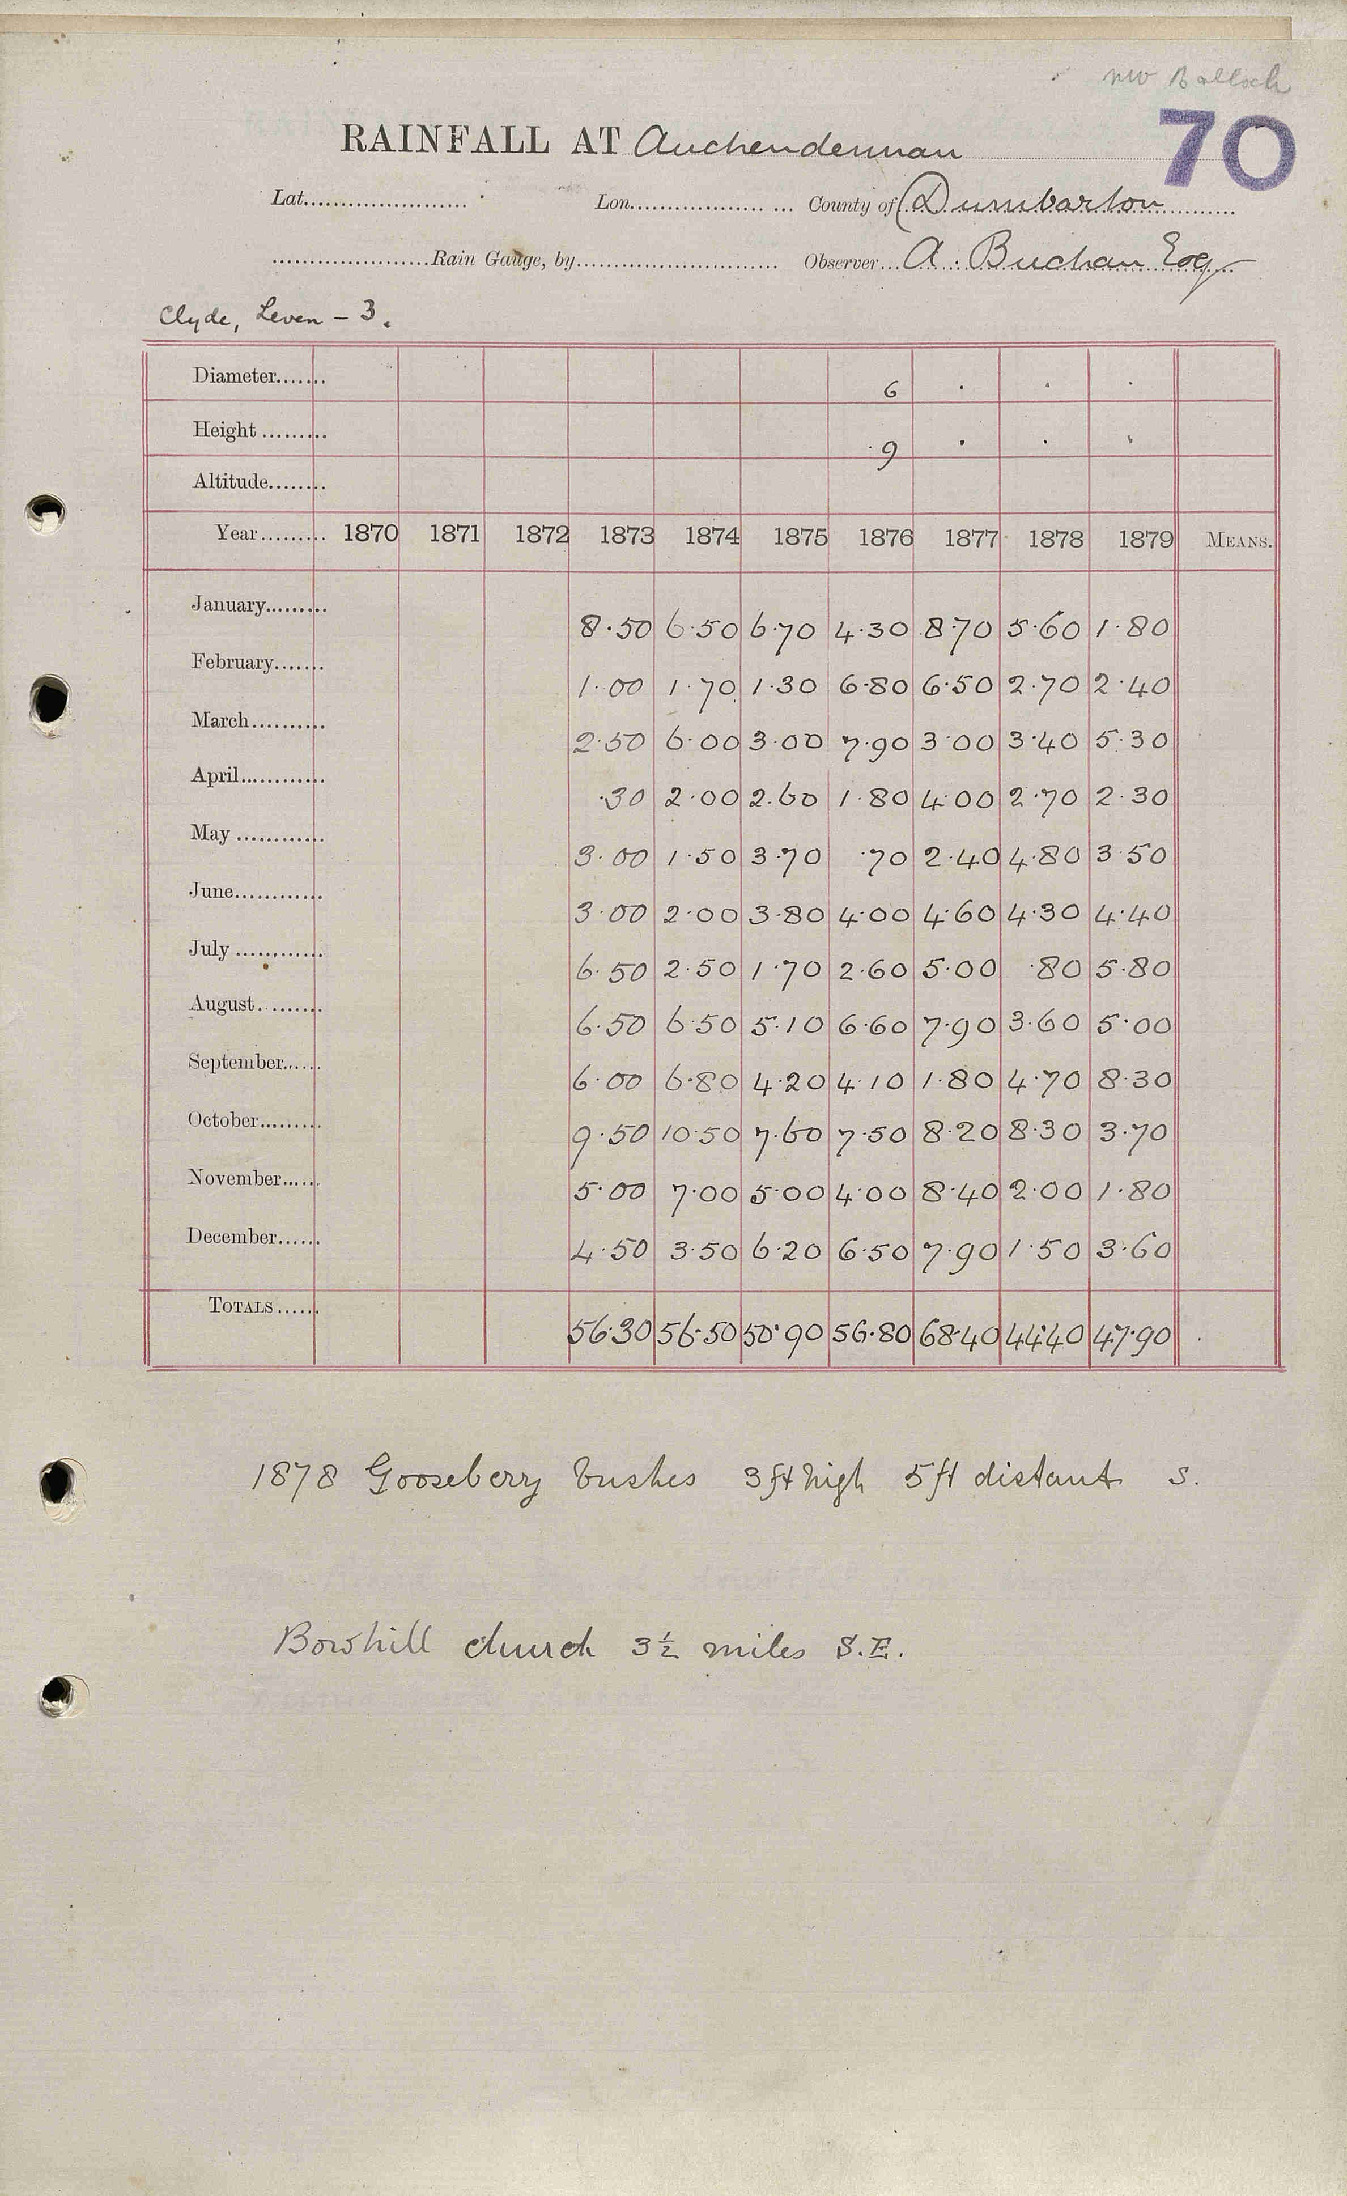 NW Balloch
70
RAINFALL AT Auchendennan
Lat...................... Lon................... ... County of Dumbarton
......................Rain Gauge, by............................ Observer... A. Buchan Esq
Clyde, Leven - 3.
Diameter....... 6 . . .
Height ......... 9 . . .
Altitude........
Year......... 1870 1871 1872 1873 1874 1875 1876 1877 1878 1879 MEANS.
January......... 8.50 6.50 6.70 4.30 8.70 5.60 1.80
February....... 1.00 1.70 1.30 6.80 6.50 2.70 2.40
March.......... 2.50 6.00 3.00 7.90 3.00 3.40 5.30
April............ .30 2.00 2.60 1.80 4.00 2.70 2.30
May ............ 3.00 1.50 3.70 .70 2.40 4.80 3.50
June............ 3.00 2.00 3.80 4.00 4.60 4.30 4.40
July ............ 6.50 2.50 1.70 2.60 5.00 .80 5.80
August......... 6.50 6.50 5.10 6.60 7.90 3.60 5.00
September...... 6.00 6.80 4.20 4.10 1.80 4.70 8.30
October......... 9.50 10.50 7.60 7.50 8.20 8.30 3.70
November...... 5.00 7.00 5.00 4.00 8.40 2.00 1.80
December...... 4.50 3.50 6.20 6.50 7.90 1.50 3.60
TOTALS...... 56.30 56.50 50.90 56.80 68.40 44.40 47.90
1878 Gooseberry bushes 3 ft high 5 ft distant S.
Bowhill church 3½ miles S.E.